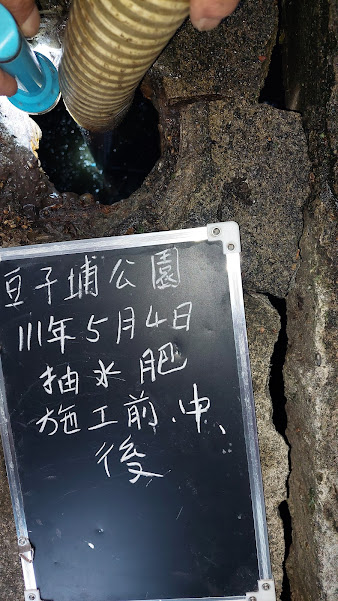 豆子埔公園
111年5月4日
抽水肥
施工前、中、
後